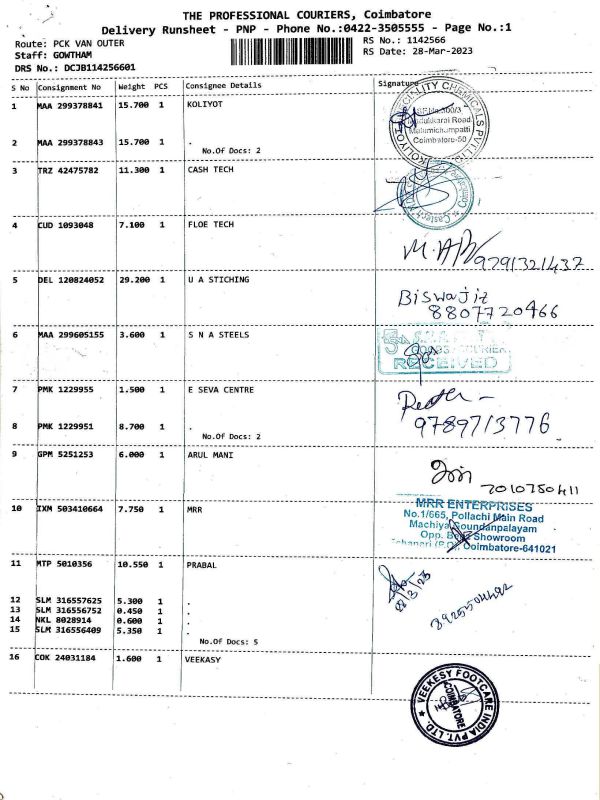 THE PROFESSIONAL COURIERS, Coimbatore
Delivery Runsheet - PNP - Phone No.:0422-3505555 - Page No.:1
Route: PCK VAN OUTER
RS No.: 1142566
Staff: GOWTHAM
RS Date: 28-Mar-2023
DRS No.: DCJB114256601
S No Consignment No Weight PCS Consignee Details Signature
1 MAA 299378841 15.700 1 KOLIYOT
2 MAA 299378843 15.700 1 .
No.Of Docs: 2
KOLIYOT SPECIALITY CHEMICALS PVT LTD
Malumichampatti
Coimbatore-50
3 TRZ 42475782 11.300 1 CASH TECH
4 CUD 1093048 7.100 1 FLOE TECH
9791321437
5 DEL 120824052 29.200 1 U A STICHING
Biswajit
8807720466
6 MAA 299605155 3.600 1 S N A STEELS
RECEIVED
7 PMK 1229955 1.500 1 E SEVA CENTRE
8 PMK 1229951 8.700 1 .
No.Of Docs: 2
9789713776
9 GPM 5251253 6.000 1 ARUL MANI
7010750411
10 IXM 503410664 7.750 1 MRR
MRR ENTERPRISES
No.1/665, Pollachi Main Road
Machiya Goundanpalayam
Opp. Benz Showroom
Coimbatore-641021
11 MTP 5010356 10.550 1 PRABAL
28/3/23
12 SLM 316557625 5.300 1 .
13 SLM 316556752 0.450 1 .
14 NKL 8028914 0.600 1 .
15 SLM 316556409 5.350 1 .
No.Of Docs: 5
16 COK 24031184 1.600 1 VEEKASY
VEEKESY FOOTCARE INDIA PVT. LTD.
COIMBATORE